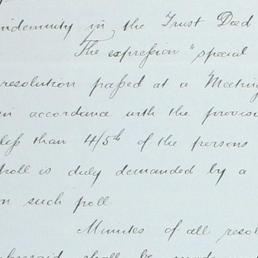 indemnity in the Trust Deed
The expression "special
resolution passed at a Meeting
in accordance with the provisi
less than 4/5th of the persons
poll is duly demanded by a
on such poll
Minutes of all resol
aforesaid shall be made